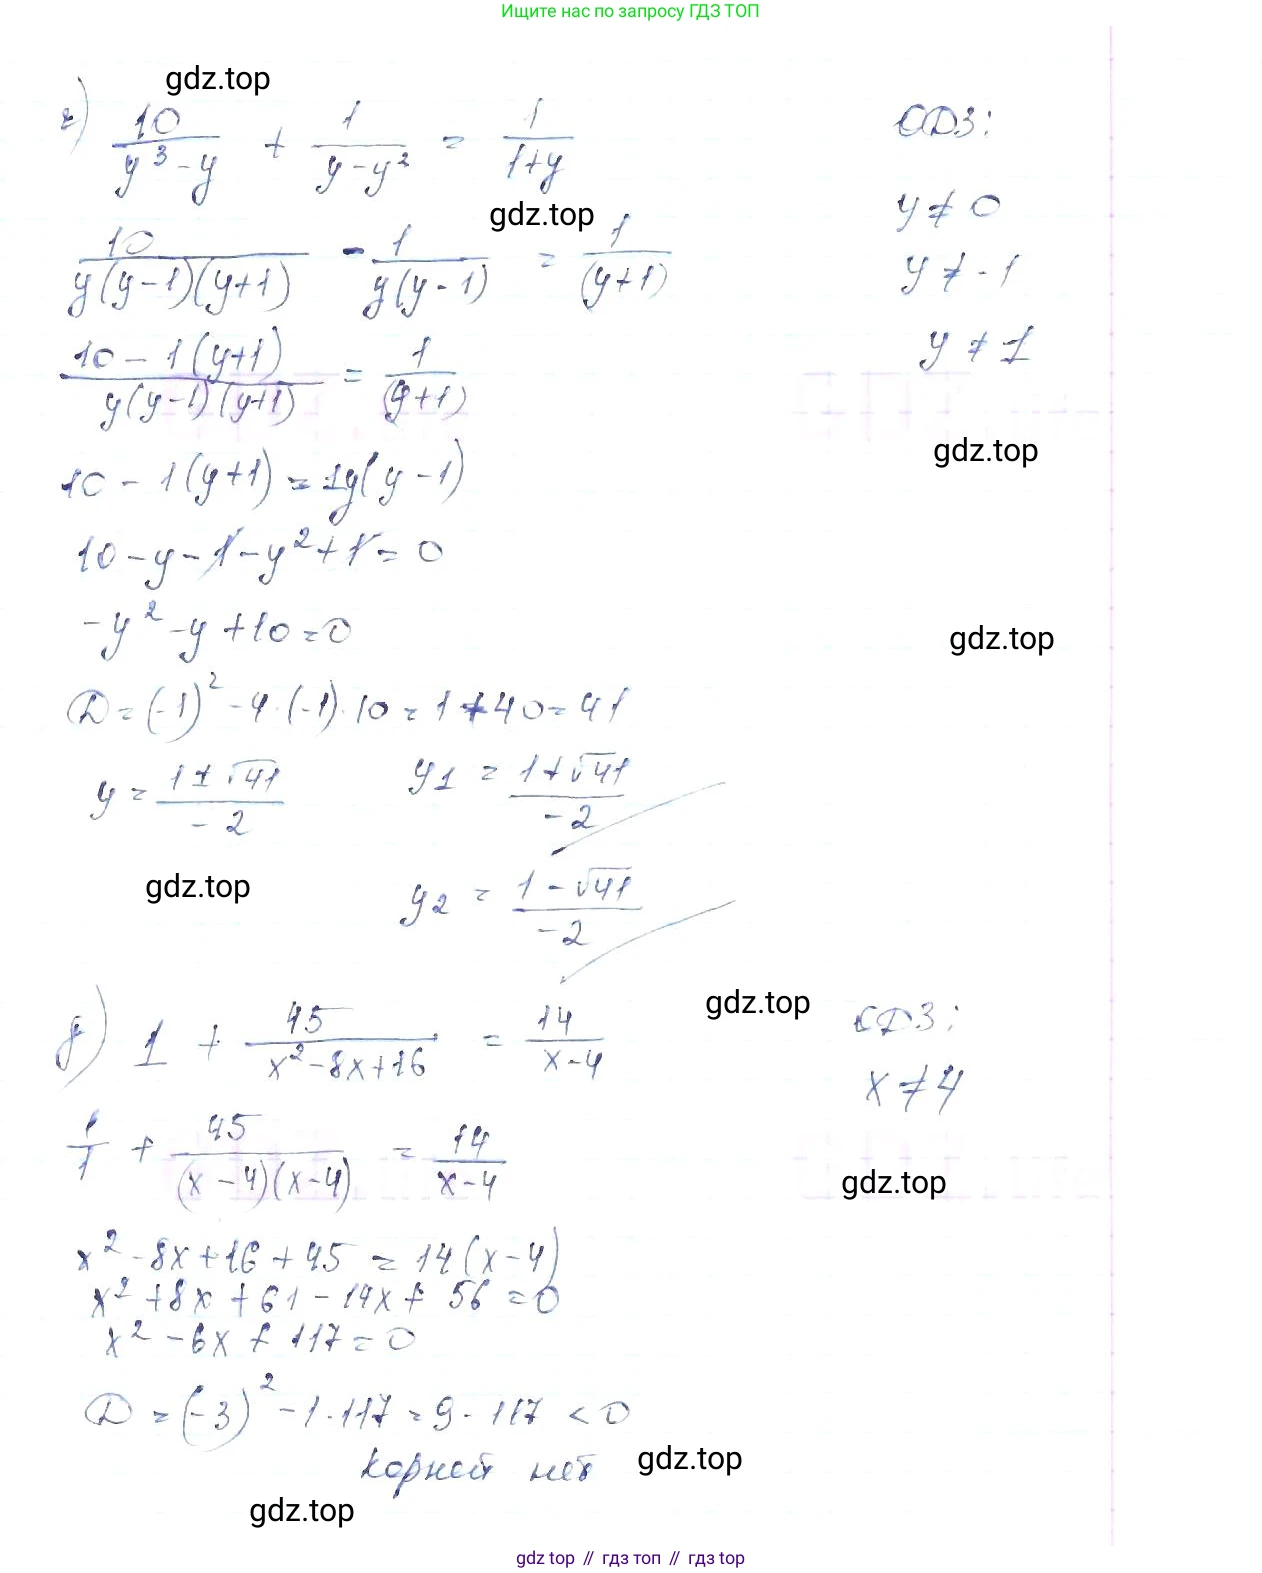 Ищите нас по запросу ГДЗ ТОП
gdz.top
г) 10/(y³-y) + 1/(y-y²) = 1/(1+y)
ОДЗ:
y ≠ 0
gdz.top
10/(y(y-1)(y+1)) - 1/(y(y-1)) = 1/(y+1)
y ≠ -1
y ≠ 1
(10-1(y+1))/(y(y-1)(y+1)) = 1/(y+1)
gdz.top
10-1(y+1) = 1y(y-1)
10-y-1-y²+1=0
-y²-y+10=0
gdz.top
D=(-1)²-4·(-1)·10=1+40=41
y = (1±√41)/-2   y1 = (1+√41)/-2
gdz.top
y2 = (1-√41)/-2
gdz.top
д) 1 + 45/(x²-8x+16) = 14/(x-4)
ОДЗ:
x ≠ 4
1/1 + 45/((x-4)(x-4)) = 14/(x-4)
gdz.top
x²-8x+16+45 = 14(x-4)
x²+8x+61-14x+56=0
x²-6x+117=0
D=(-3)²-1·117=9-117<0
корней нет
gdz.top
gdz.top
gdz top // гдз топ // gdz top